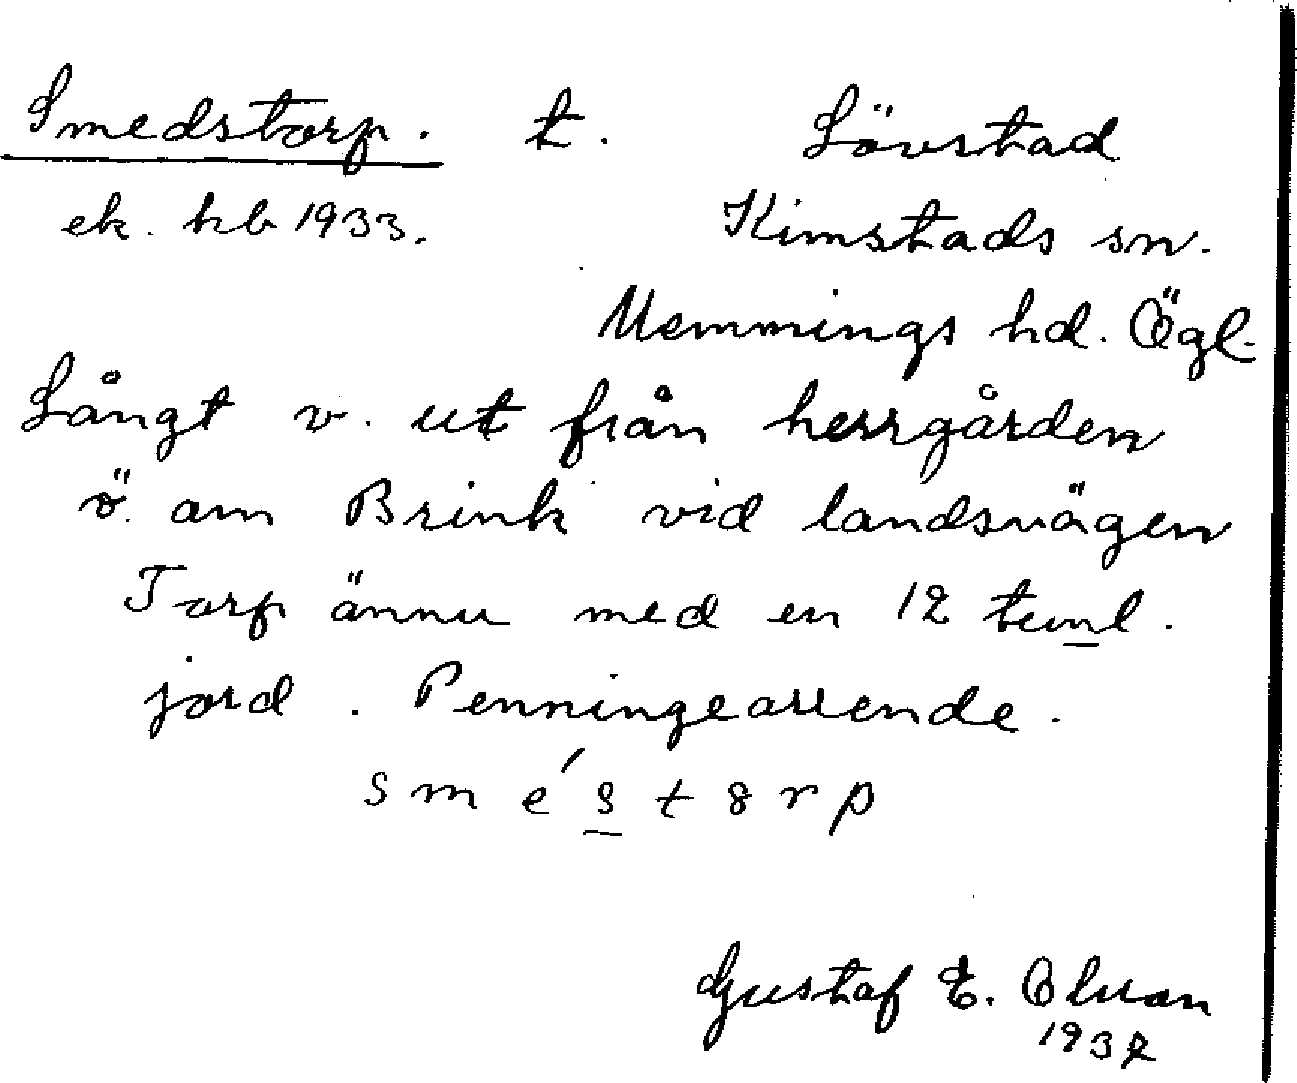 Smedstorp. t. Lövstad
ek. hb 1933. Kimstads sn.
Memmings hd. Ögl.
Långt v. ut från herrgården
ö. om Brink vid landsvägen
Torp ännu med en 12 tunl.
jord. Penningearrende.
s m é s t 8 r p
Gustaf E.
1937